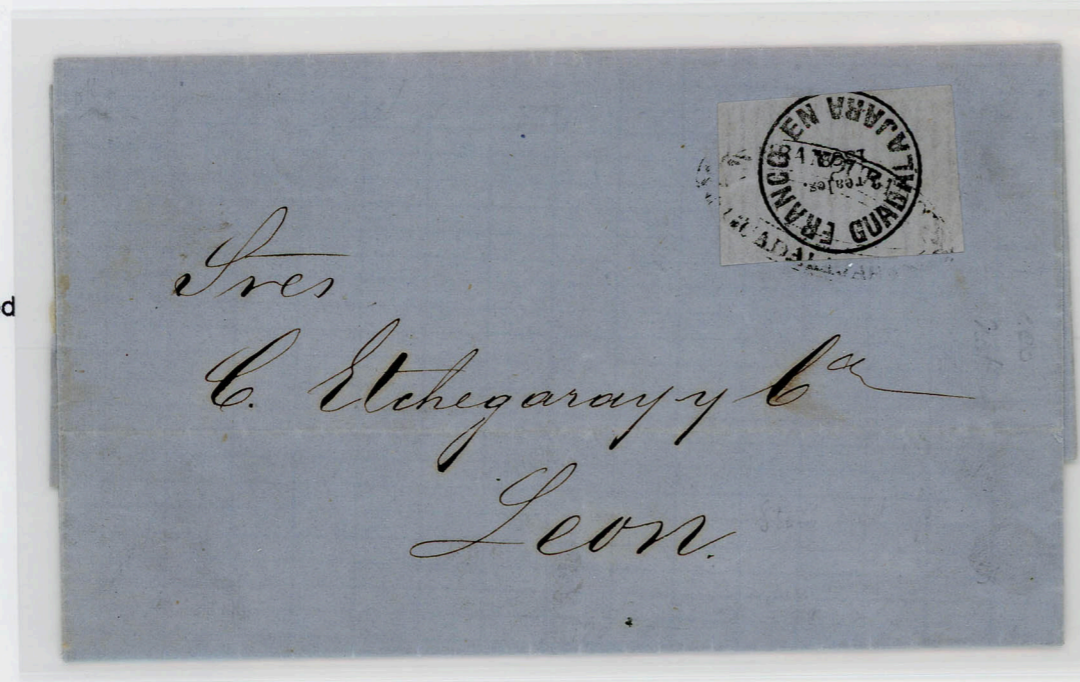 FRANCO EN GUADALAJARA
2 reales.
Sres
C. Etchegaray y Cª
Leon.
d